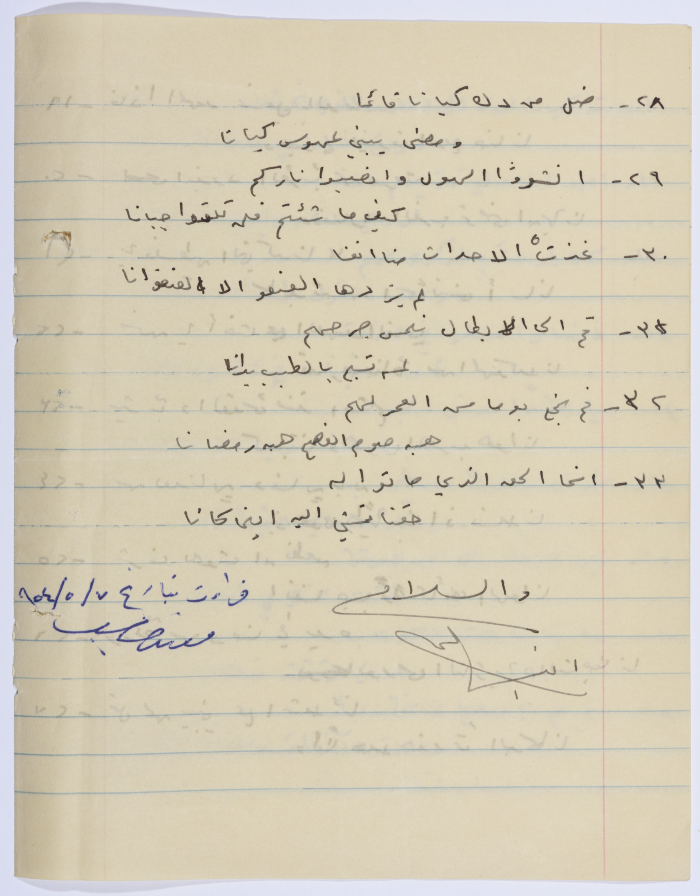 ٢٨- ضل من دك كيانا قائما
ومضى يبني كيانا
٢٩- انشروا الهول وانصبوا ناركم
كيف ما شئتم فلن تلقوا جبانا
٣٠- غذت الاحداث منا انفسا
لم يزدها العنف الا عنفوانا
٣١- قم الى الابطال نلمس جرحهم
لمسة تسبح بالطيب يدانا
٣٢- قم نجع يوما من العمر لهم
هبه صوم الفصح هبه رمضانا
٣٣- انما الحق الذي ماتوا له
حقنا نمشي اليه اينما كانا
والسلام
قراءت بتاريخ ٧/٥/٩٥٤